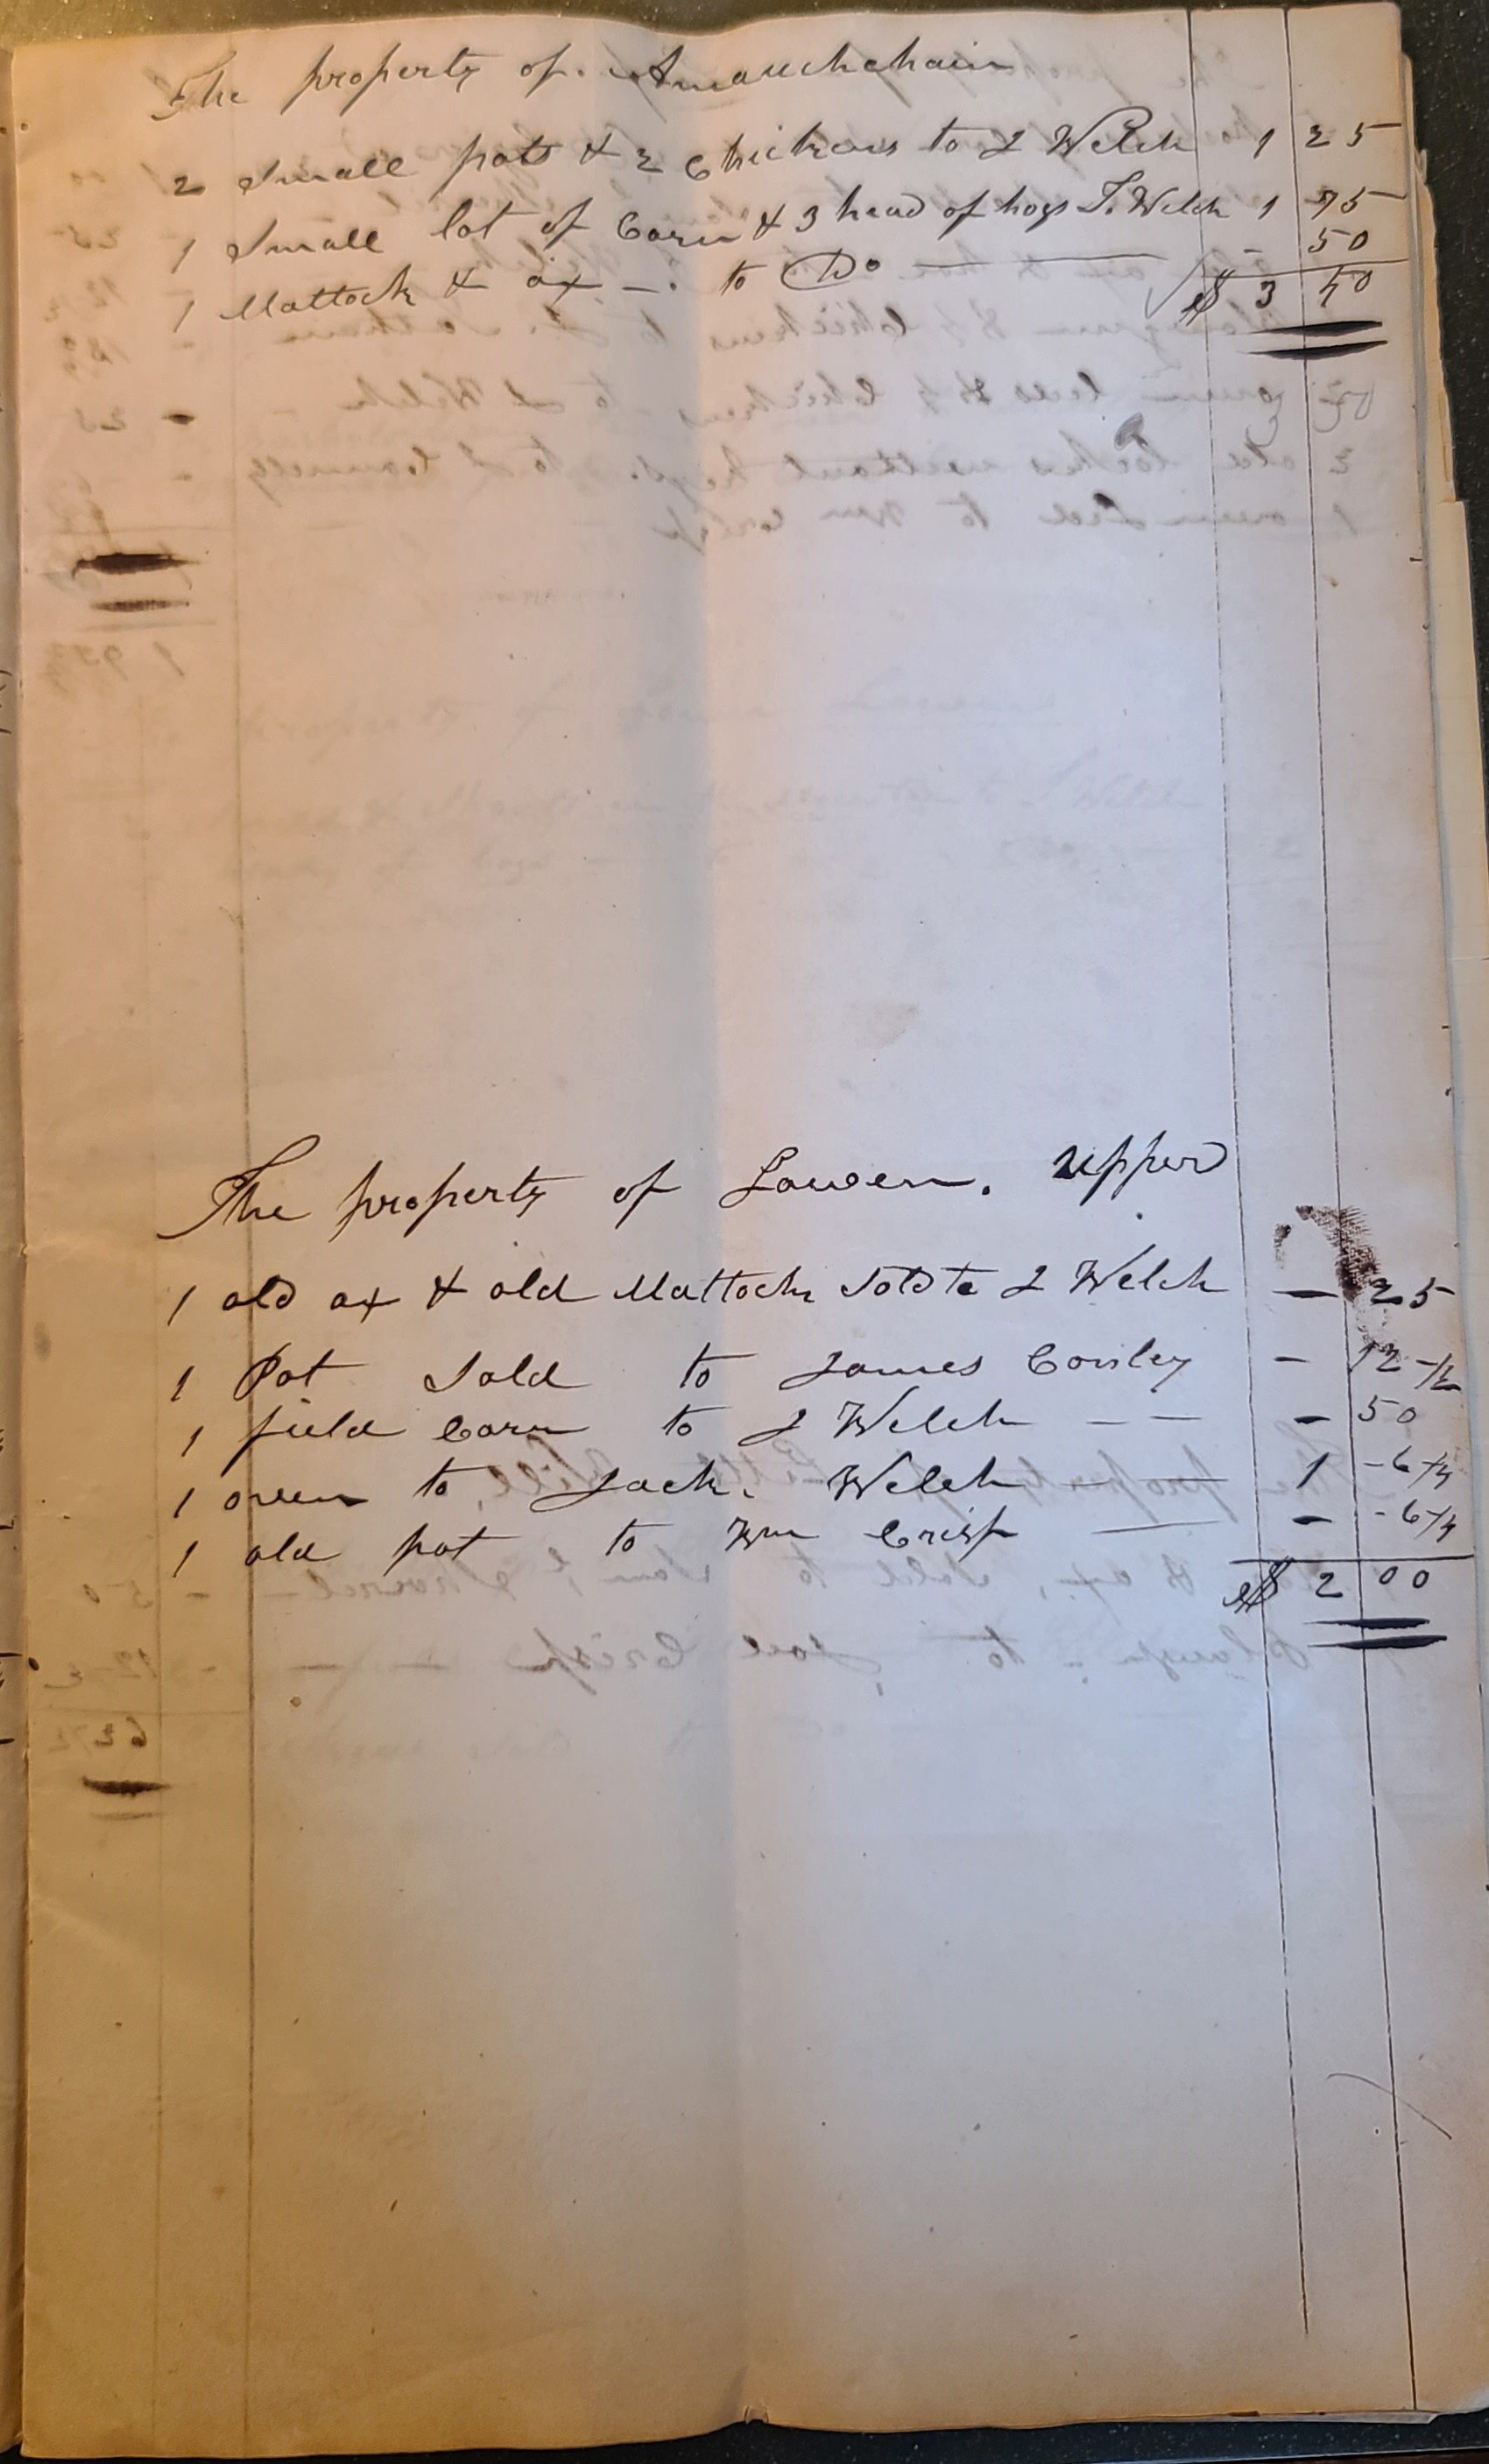 The property of. Amauchehain
2 Small pots & 2 Chickens to J Welch 1 25
1 Small lot of Corn & 3 head of hogs J. Welch 1 75
1 Mattock & ax — . to Do — - 50
$ 3 50
The property of Lowen. upper
1 old ax & old Mattock Sold to J Welch — 25
1 Pot Sold to James Conley - 12-1/2
1 field Corn to J Welch — — - 50
1 oven to Jack. Welch — 1 -6-1/4
1 old pot to Wm Crisp — - -6 1/4
$ 2 00